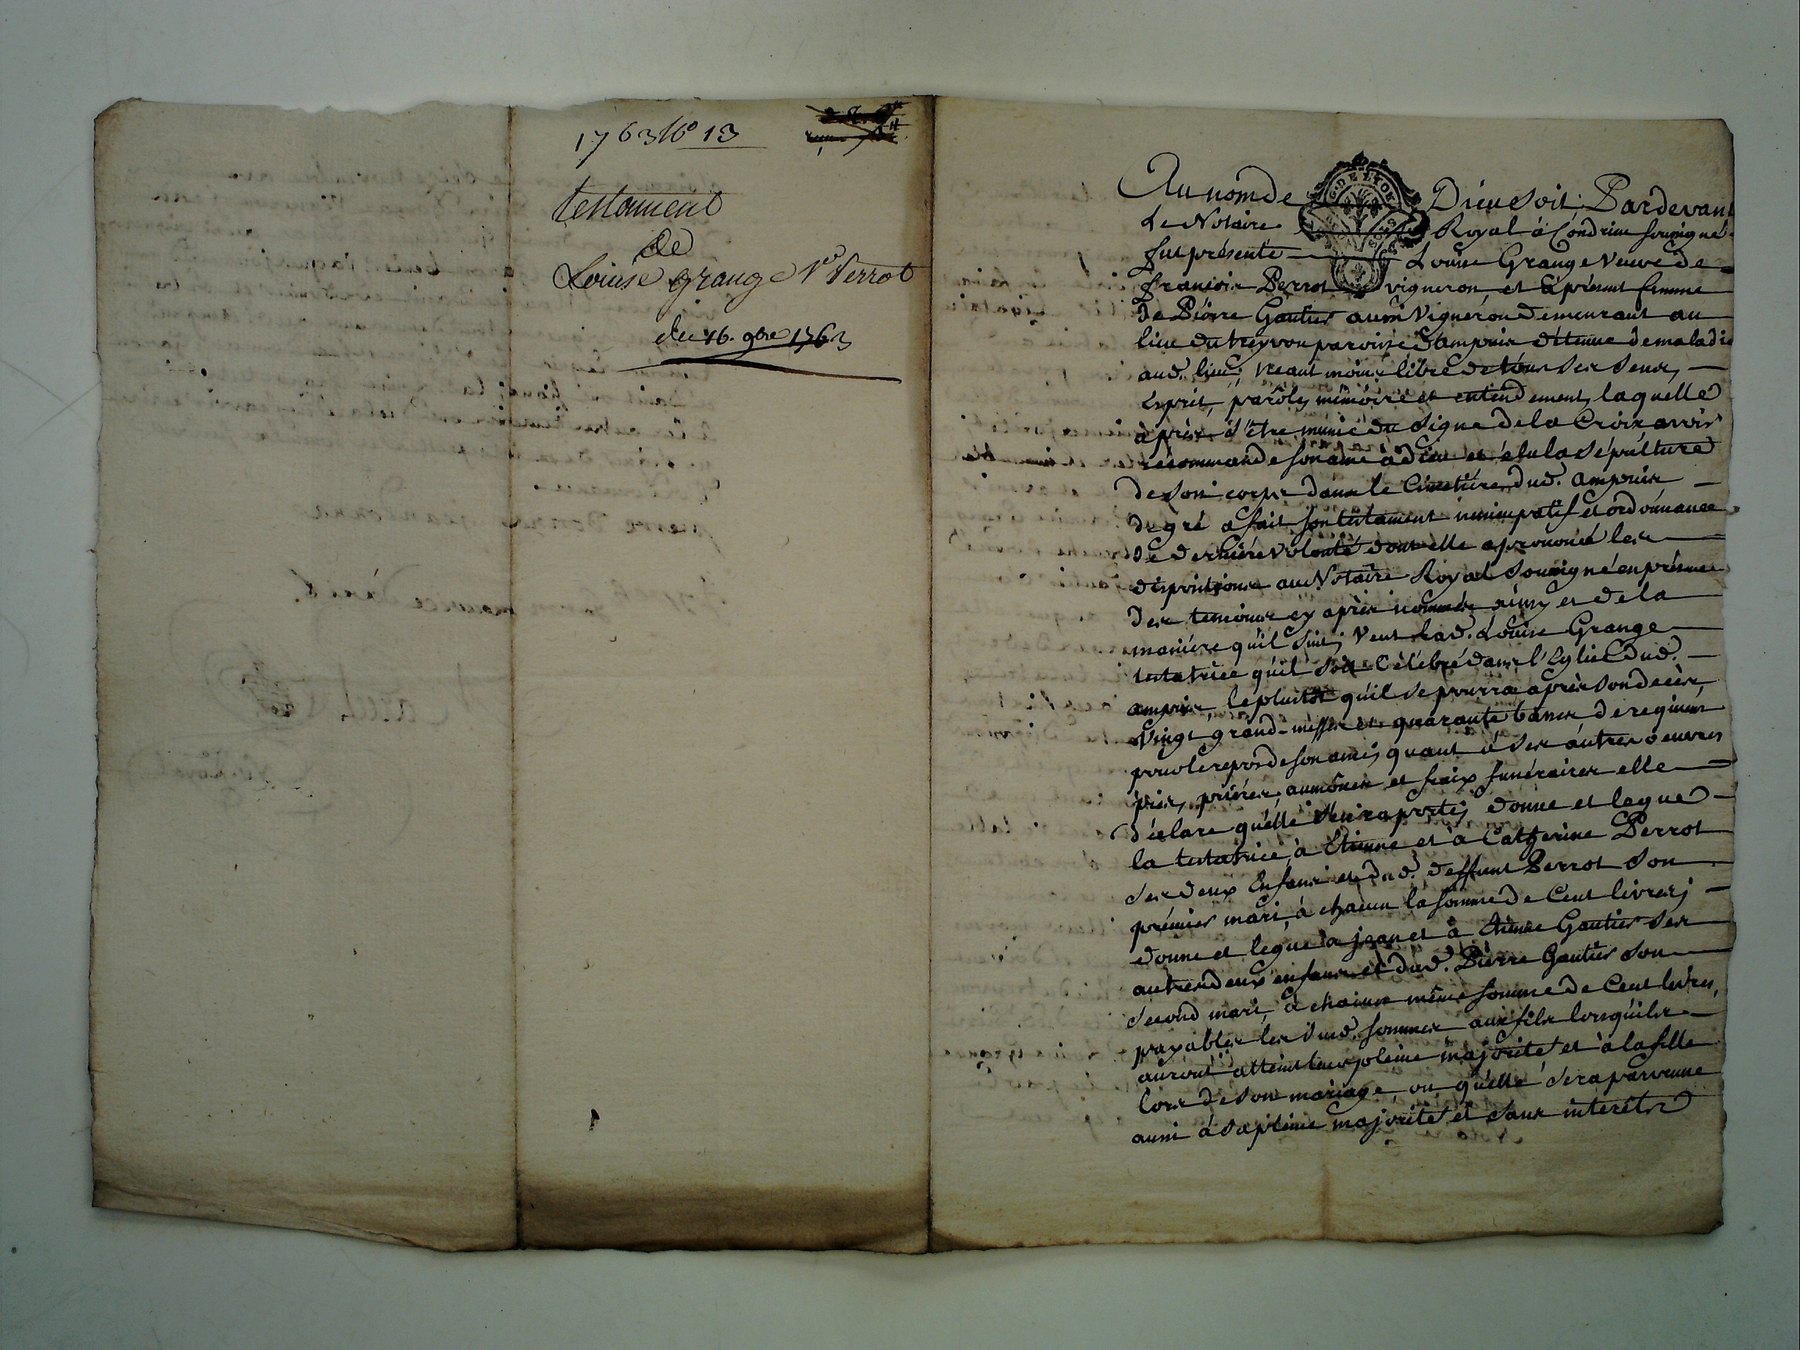 1763 No 13
testament
de
Louise grange Ve Perrot
du 16. 9bre 1763
Au nom de Dieu soit: Pardevant
Le Notaire Royal à Condrieu soussigné
fut présente Louise Grange veuve de
françois Perrot vigneron, et àprésent femme
de Piérre Gautier aussi vigneron demeurant au
lieu du treyvon paroisse d'ampuis détenue de maladie
aud. lieu; neant moins libre de tous ses sens,
Esprit, parole, mémoire et entendement, laquelle
àprès s'être munie du signe de la Croix avoir
récommandé son ame à dieu et élu la sépulture
de son corps dans le Cimetiére dud. ampuis
de gré a fait son testament nuncupatif et ordonnance
de derniére volonté dont elle a prononcé les
dispositions au Notaire Royal soussigné en présence
des temoins cy après nommés ainsy et de la
maniére qu'il suit; veut lad. Louise Grange
testatrice qu'il soit célébré dans l'Eglise dud.
ampuis, le plutôt qu'il se pourra après son decès,
vingt grand-messes et quarante basses de requiem
pour le repos de son ame; quant à ses autres oeuvres
pies, priéres, aumônes et fraix funéraires elle
déclare qu'elle s'en raporte; donne et legue
la testatrice, à Etienne et à Catherine Perrot
ses deux Enfans et dud. deffunt Perrot son
prémier mari, à chacun la somme de Cent livres;
donne et legue à jean et à Etienne Gautier ses
autres deux enfans et dud. Piérre Gautier son
second mari, à chacun même somme de Cent livres,
payables les sud. sommes aux fils lorsqu'ils
auront atteint leur pleine majorité et à la fille
lors de son mariage, ou qu'elle sera parvenue
aussi à sa pleine majorité et sans intérêts